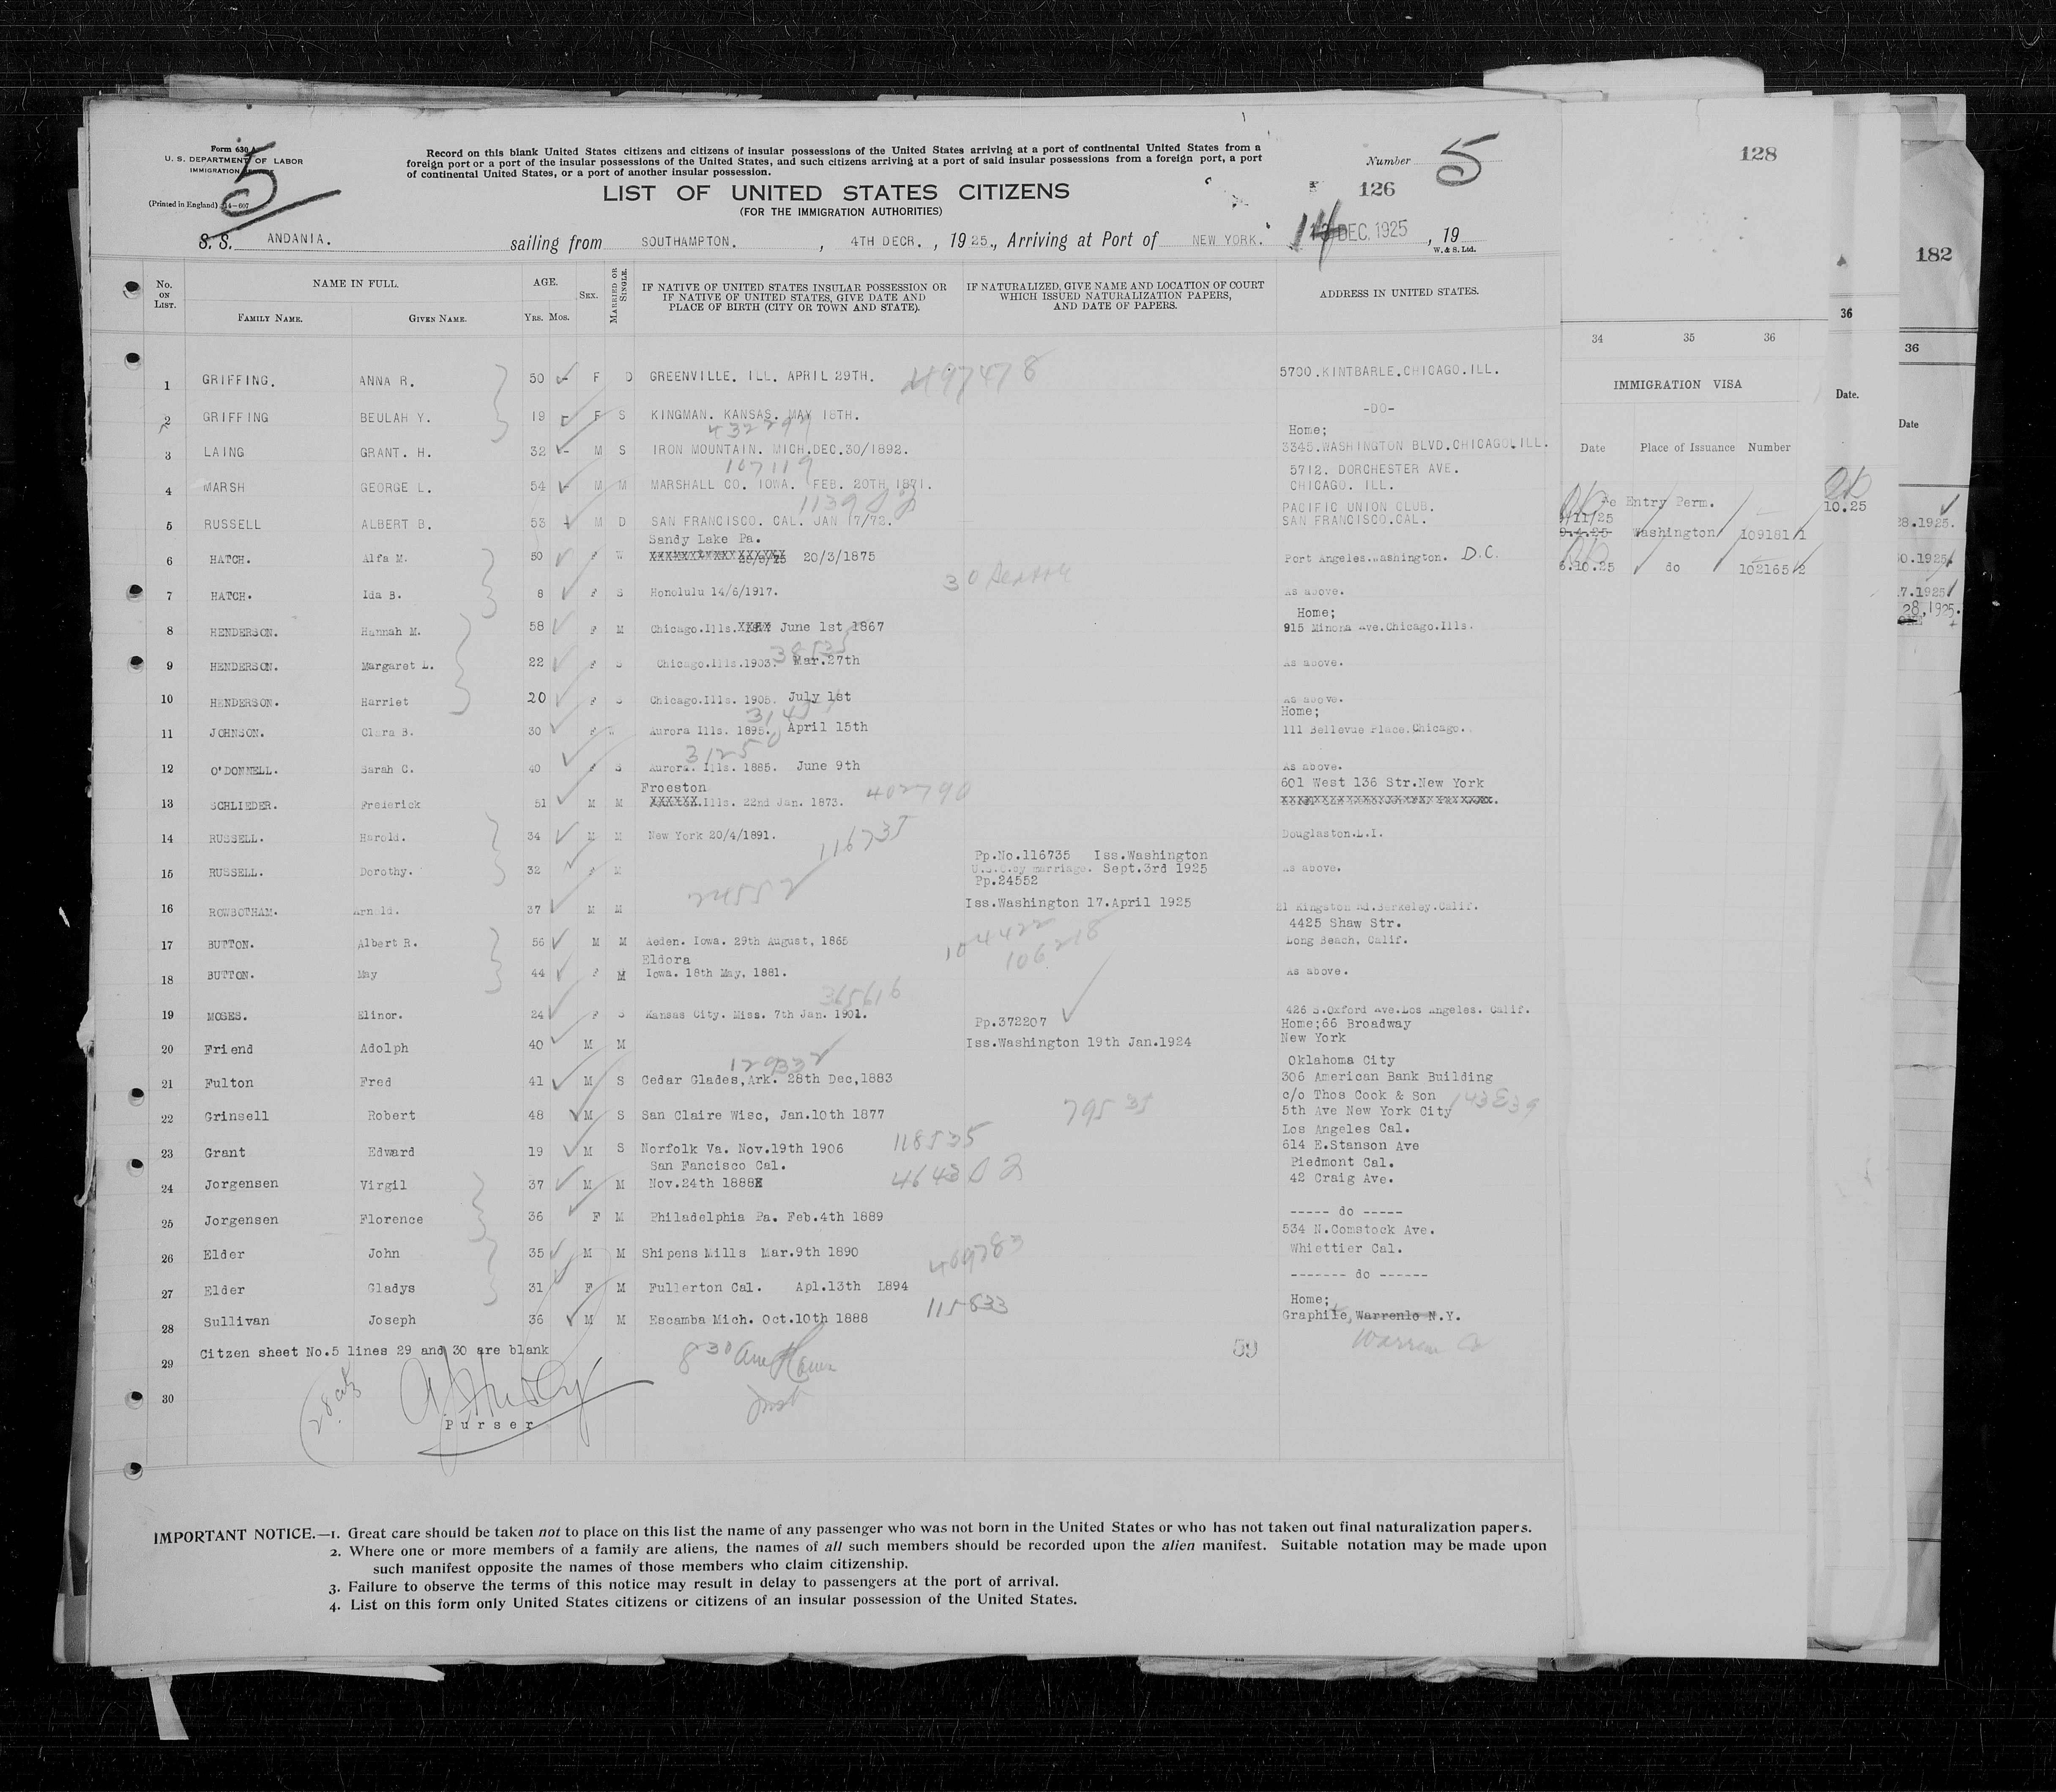 Form 630
U. S. DEPARTMENT OF LABOR
IMMIGRATION
(Printed in England) 14-607
5
Record on this blank United States citizens and citizens of insular possessions of the United States arriving at a port of continental United States from a
foreign port or a port of the insular possessions of the United States, and such citizens arriving at a port of said insular possessions from a foreign port, a port
of continental United States, or a port of another insular possession.
LIST OF UNITED STATES CITIZENS
(FOR THE IMMIGRATION AUTHORITIES)
Number 5
126
S. S. ANDANIA. sailing from SOUTHAMPTON. , 4TH DECR. , 1925., Arriving at Port of NEW YORK. 14 DEC. 1925 , 19
W. & S. Ltd.
No. ON LIST. NAME IN FULL. AGE. SEX. MARRIED OR SINGLE. IF NATIVE OF UNITED STATES INSULAR POSSESSION OR IF NATIVE OF UNITED STATES, GIVE DATE AND PLACE OF BIRTH (CITY OR TOWN AND STATE). IF NATURALIZED, GIVE NAME AND LOCATION OF COURT WHICH ISSUED NATURALIZATION PAPERS, AND DATE OF PAPERS. ADDRESS IN UNITED STATES.
FAMILY NAME. GIVEN NAME. YRS. MOS.
1 GRIFFING. ANNA R. 50 F D GREENVILLE. ILL. APRIL 29TH. 497478 5700.KINTBARLE.CHICAGO.ILL.
2 GRIFFING BEULAH Y. 19 F S KINGMAN. KANSAS. MAY 18TH. -DO-
Home;
3 LAING GRANT. H. 32 M S IRON MOUNTAIN. MICH.DEC.30/1892. 3345.WASHINGTON BLVD.CHICAGO.ILL.
107119 5712. DORCHESTER AVE.
4 MARSH GEORGE L. 54 M M MARSHALL CO. IOWA. FEB. 20TH 1871. CHICAGO. ILL.
PACIFIC UNION CLUB.
5 RUSSELL ALBERT B. 53 M D SAN FRANCISCO. CAL. JAN 17/72. SAN FRANCISCO.CAL.
Sandy Lake Pa.
6 HATCH. Alfa M. 50 F W 20/3/1875 Port Angeles.Washington. D.C.
7 HATCH. Ida B. 8 F S Honolulu 14/6/1917. As above.
Home;
8 HENDERSON. Hannah M. 58 F M Chicago.Ills.XXXX June 1st 1867 915 Minona Ave.Chicago.Ills.
9 HENDERSON. Margaret L. 22 F S Chicago.Ills.1903. Mar.27th As above.
10 HENDERSON. Harriet 20 F S Chicago.Ills. 1905. July 1st As above.
Home;
11 JOHNSON. Clara B. 30 F W Aurora Ills. 1895. April 15th 111 Bellevue Place.Chicago.
31250
12 O'DONNELL. Sarah C. 40 F S Aurora. Ills. 1885. June 9th As above.
Froeston 601 West 136 Str.New York
13 SCHLIEDER. Freierick 51 M M XXXXXX.Ills. 22nd Jan. 1873. 402790
14 RUSSELL. Harold. 34 M M New York 20/4/1891. 116735 Douglaston.L.I.
Pp.No.116735 Iss.Washington
15 RUSSELL. Dorothy. 32 F M U.S.C.by marriage. Sept.3rd 1925 As above.
24552 Pp.24552
16 ROWBOTHAM. Arnold. 37 M M Iss.Washington 17.April 1925 21 Kingston Rd.Berkeley.Calif.
4425 Shaw Str.
17 BUTTON. Albert R. 56 M M Aeden. Iowa. 29th August, 1865 104422 Long Beach, Calif.
Eldora 106218
18 BUTTON. May 44 F M Iowa. 18th May, 1881. As above.
365616
19 MOSES. Elinor. 24 F S Kansas City. Miss. 7th Jan. 1901. 426 S.Oxford Ave.Los Angeles. Calif.
Pp.372207 Home;66 Broadway
20 Friend Adolph 40 M M Iss.Washington 19th Jan.1924 New York
129332 Oklahoma City
21 Fulton Fred 41 M S Cedar Glades,Ark. 28th Dec,1883 306 American Bank Building
c/o Thos Cook & Son
22 Grinsell Robert 48 M S San Claire Wisc, Jan.10th 1877 79535 5th Ave New York City
Los Angeles Cal.
23 Grant Edward 19 M S Norfolk Va. Nov.19th 1906 118535 614 E.Stanson Ave
San Fancisco Cal. Piedmont Cal.
24 Jorgensen Virgil 37 M M Nov.24th 1888X 42 Craig Ave.
25 Jorgensen Florence 36 F M Philadelphia Pa. Feb.4th 1889 ----- do -----
534 N.Comstock Ave.
26 Elder John 35 M M Shipens Mills Mar.9th 1890 Whiettier Cal.
27 Elder Gladys 31 F M Fullerton Cal. Apl.13th 1894 ------- do ------
Home;
28 Sullivan Joseph 36 M M Escamba Mich. Oct.10th 1888 115833 Graphite, Warrenlo N.Y.
Warren Co
29 Citzen sheet No.5 lines 29 and 30 are blank
59
30
Purser
IMPORTANT NOTICE.—1. Great care should be taken not to place on this list the name of any passenger who was not born in the United States or who has not taken out final naturalization papers.
2. Where one or more members of a family are aliens, the names of all such members should be recorded upon the alien manifest. Suitable notation may be made upon
such manifest opposite the names of those members who claim citizenship.
3. Failure to observe the terms of this notice may result in delay to passengers at the port of arrival.
4. List on this form only United States citizens or citizens of an insular possession of the United States.
128
34 35 36
IMMIGRATION VISA
Date Place of Issuance Number
Entry Perm.
9/11/25
9.4.25 Washington 109181 1
6.10.25 do 102165 2
36
Date.
10.25
182
36
Date
28.1925.
30.1925
17.1925
28,1925.